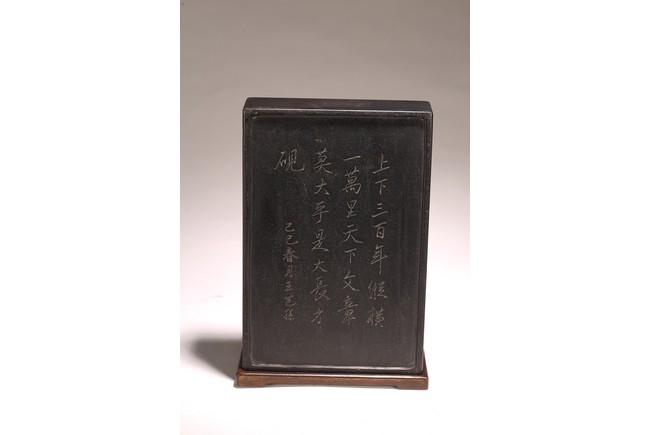 上下三百年縱橫
一萬里天下文章
莫大乎是大長才
硯
乙巳春月王芑孫